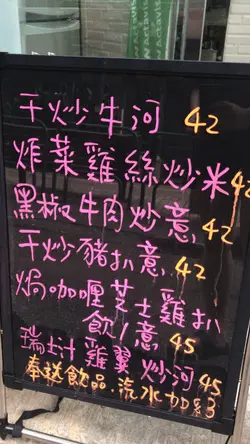 干炒牛河 42
炸菜雞絲炒米 42
黑椒牛肉炒意 42
干炒豬扒意 42
焗咖喱芝士雞扒
飯/意 45
瑞士汁雞翼炒河 45
奉送飲品.汽水加